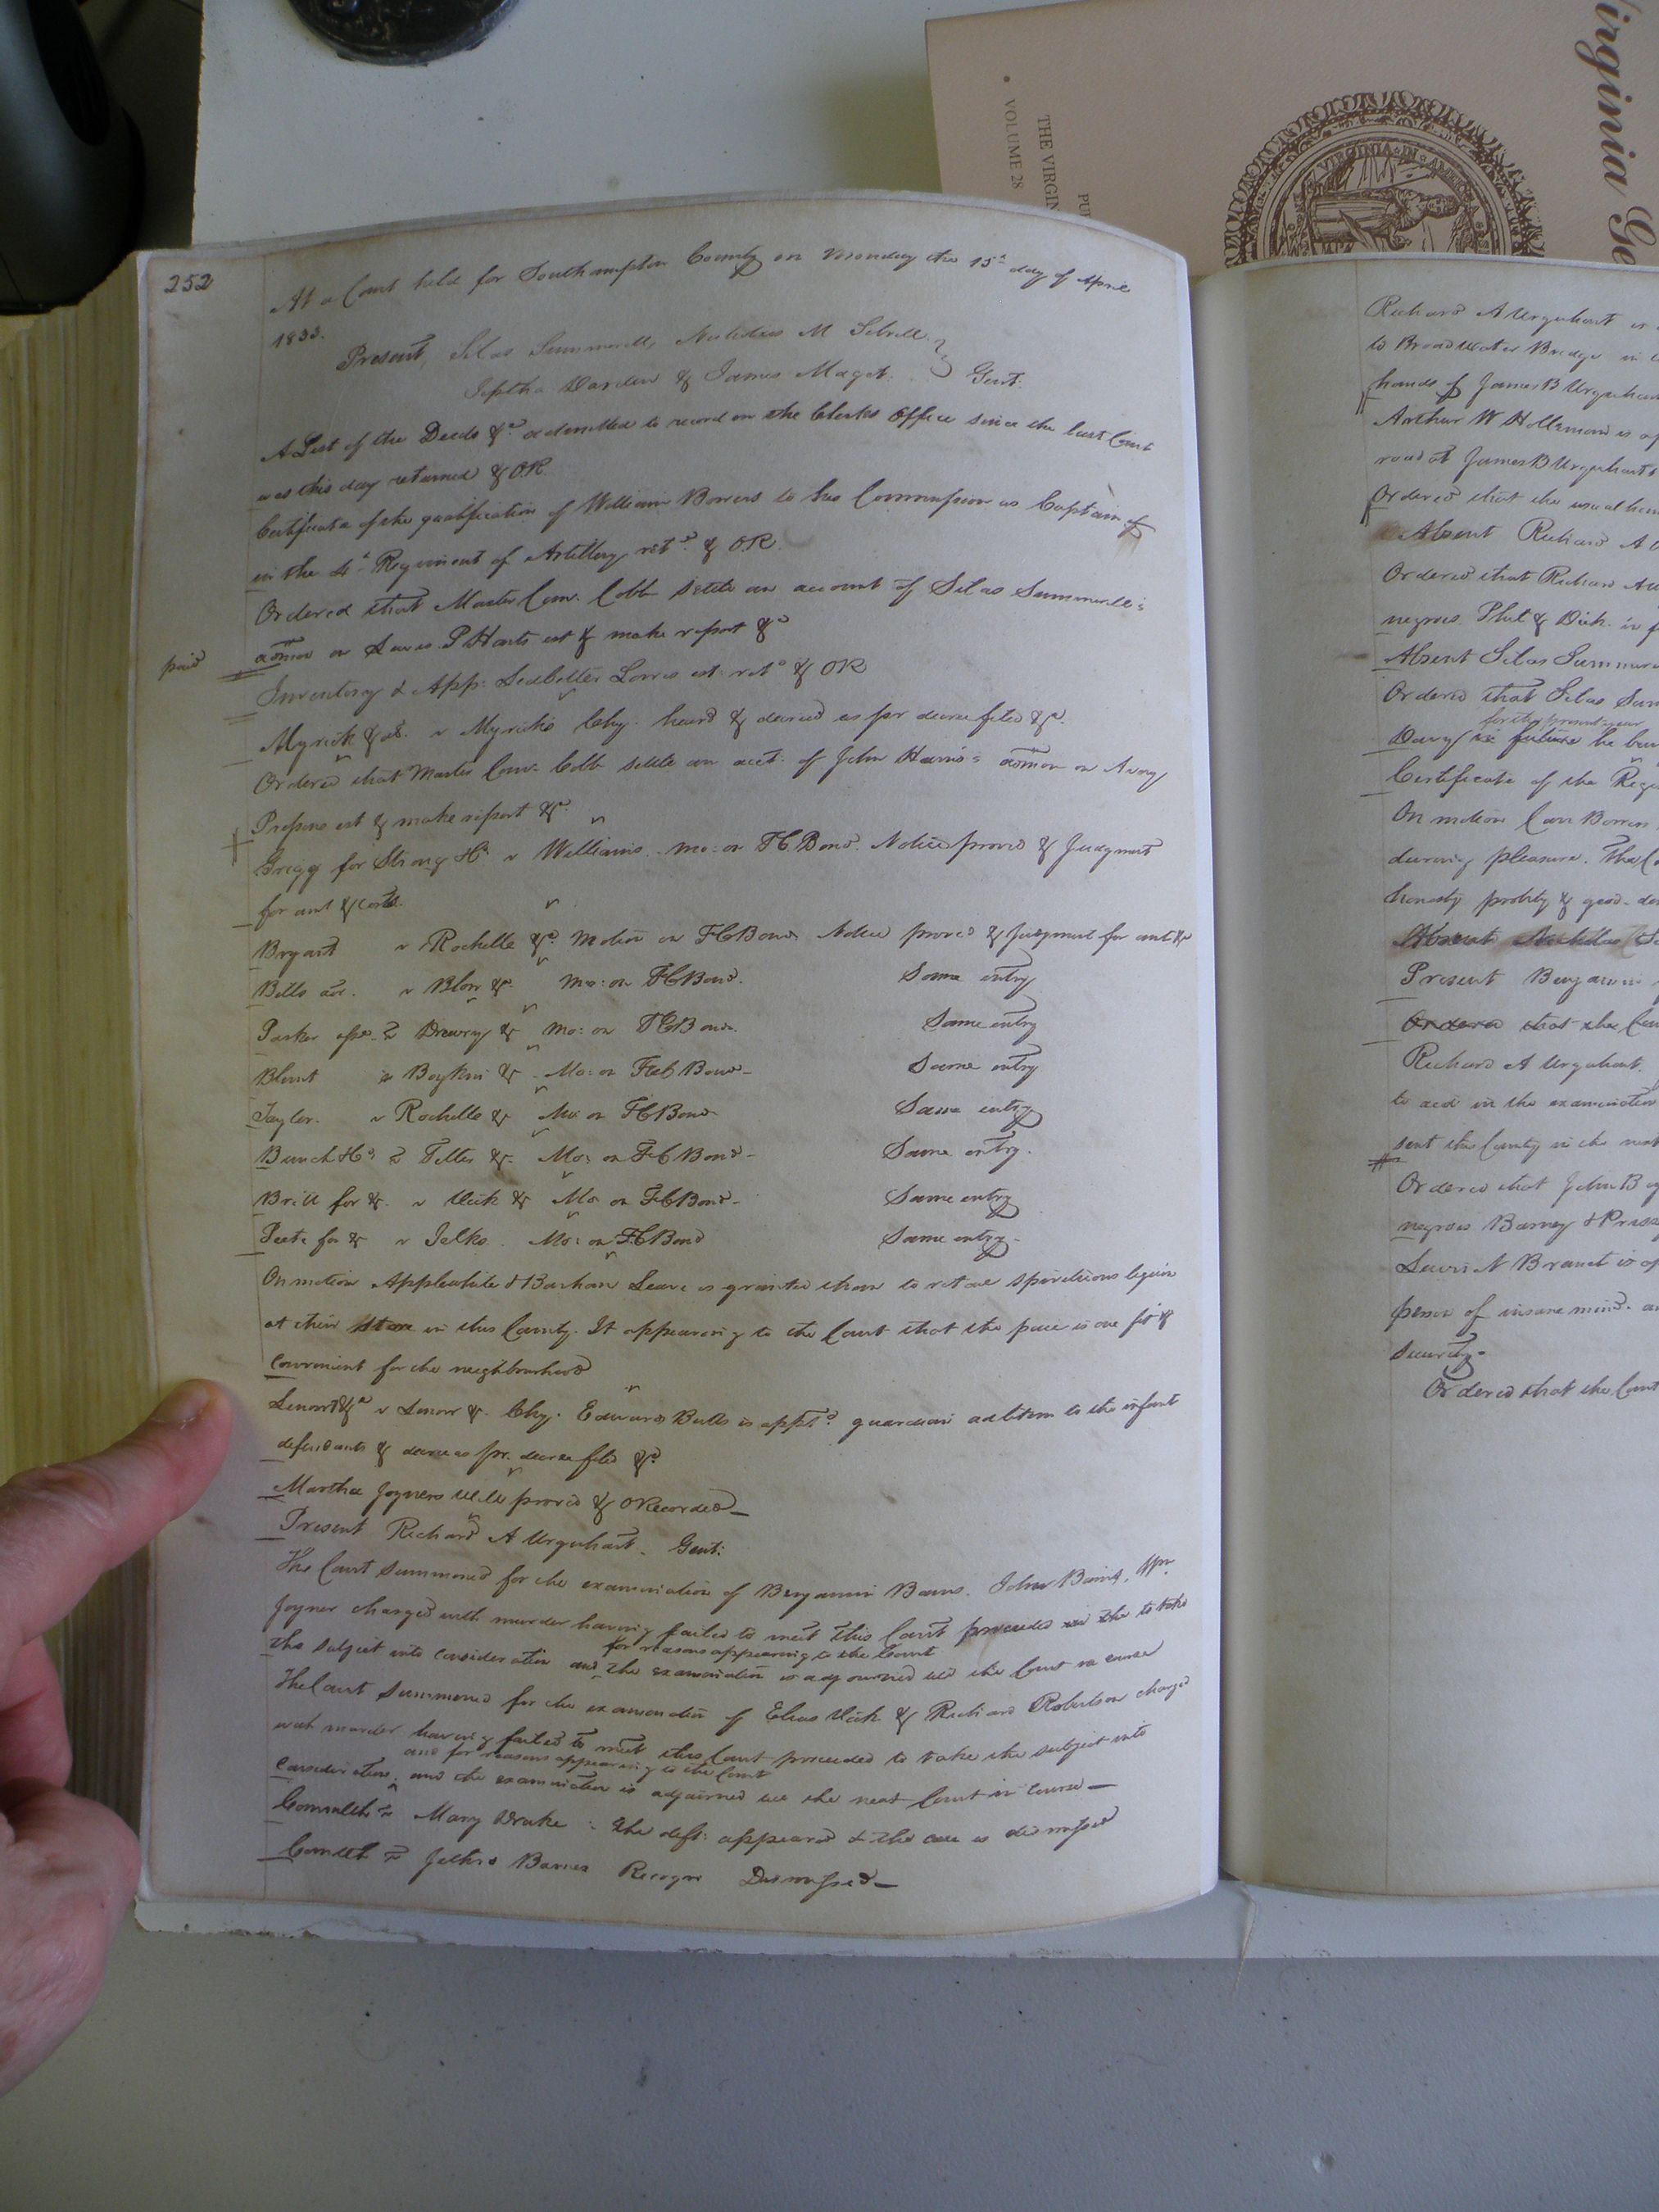 Virginia Ge
PU
THE VIRGIN
• VOLUME 28
VIRGINIA · IN · AME
252
At a Court held for Southampton County on Monday the 15th day of April
1833.
Present, Silas Summerell, M
Jeptha Darden & James Maget. Gent.
A List of the Deeds &c admitted to record in the Clerks Office since the last Court
was this day returned & OR
Certificate of the qualification of William Bowers to his Commission as Captain of
in the 4th Regiment of Artillery retd. & OR.
Ordered that Master Com. Cobb settle an account of Silas Summerell's
admon on P Harts est & make report &c
paid
Inventory & App: Ledbetter Lowes est: retd & OR
Myrick & al. v Myricks Chy. heard & decreed as pr decree filed &c.
Ordered that Master Com. Cobb settle an acct. of John Harris's admon on
est & make report &c.
Gregg for Strong Hd v Williams. mo: on FC Bond. Notice proved & Judgment
for amt & costs.
Bryant v Rochelle &c. Motion on FC Bond Notice proved & Judgment for amt &c
Bells v Blow &c. Mo: on FC Bond. Same entry
Parker v Drewry & Mo: on FC Bond. Same entry
Blunt v Boykin & Mo: on FC Bond Same entry
Taylor. v Rochelle & Mo: on FC Bond Same entry
Bunch v & Mo: on FC Bond Same entry.
Britt for &. v Vick & Mo: on FC Bond Same entry
Peete for & v Jelks. Mo: on FC Bond Same entry.
On motion Applewhite & Barham Leave is granted them to retail spirituous liquor
at their store in this County. It appearing to the Court that the place is one fit &
convenient for the neighbourhood
&c v &. Chy. Edward Butts is apptd guardian ad litem to the infant
defendants & decree as pr. decree filed &c
Martha Joyners Will proved & O Recorded
Present Richard A Urquhart. Gent:
The Court summoned for the examination of Benjamin Barns. John Barns, Wm.
Joyner charged with murder having failed to meet this Court proceeded the to take
for reasons appearing to the Court
the subject into consideration and the examination is adjourned till the Court in course
The Court summoned for the examination of Elias Vick & Richard Robertson charged
with murder having failed to meet this Court proceeded to take the subject into
and for reasons appearing to the Court
consideration, and the examination is adjourned till the next Court in course
Commlth v Mary Drake: the deft: appeared & the case is dismissed
Comlth v Jethro Barnes Recogn Dismissed
Richard A Urquhart
to Broadwater Bridge in
hands of James B Urquhart
Arthur W Holleman is
road at James B Urquharts
Ordered that the usual
Absent Richard A
Ordered that Richard
negroes. Phil & Dick. in
Absent Silas Summere
Ordered that Silas Sum
for the present year
Davy in future be
Certificate of the Reg
On motion Carr Bowers
during pleasure. The
honesty probity & good de
Absent
Present Benjamin
Ordered that the
Richard A Urquhart.
to aid in the examination
sent the County in the next
Ordered that John B
negroes Barney &
Lewis N Branch is
person of insane mind.
security.
Ordered that the Court